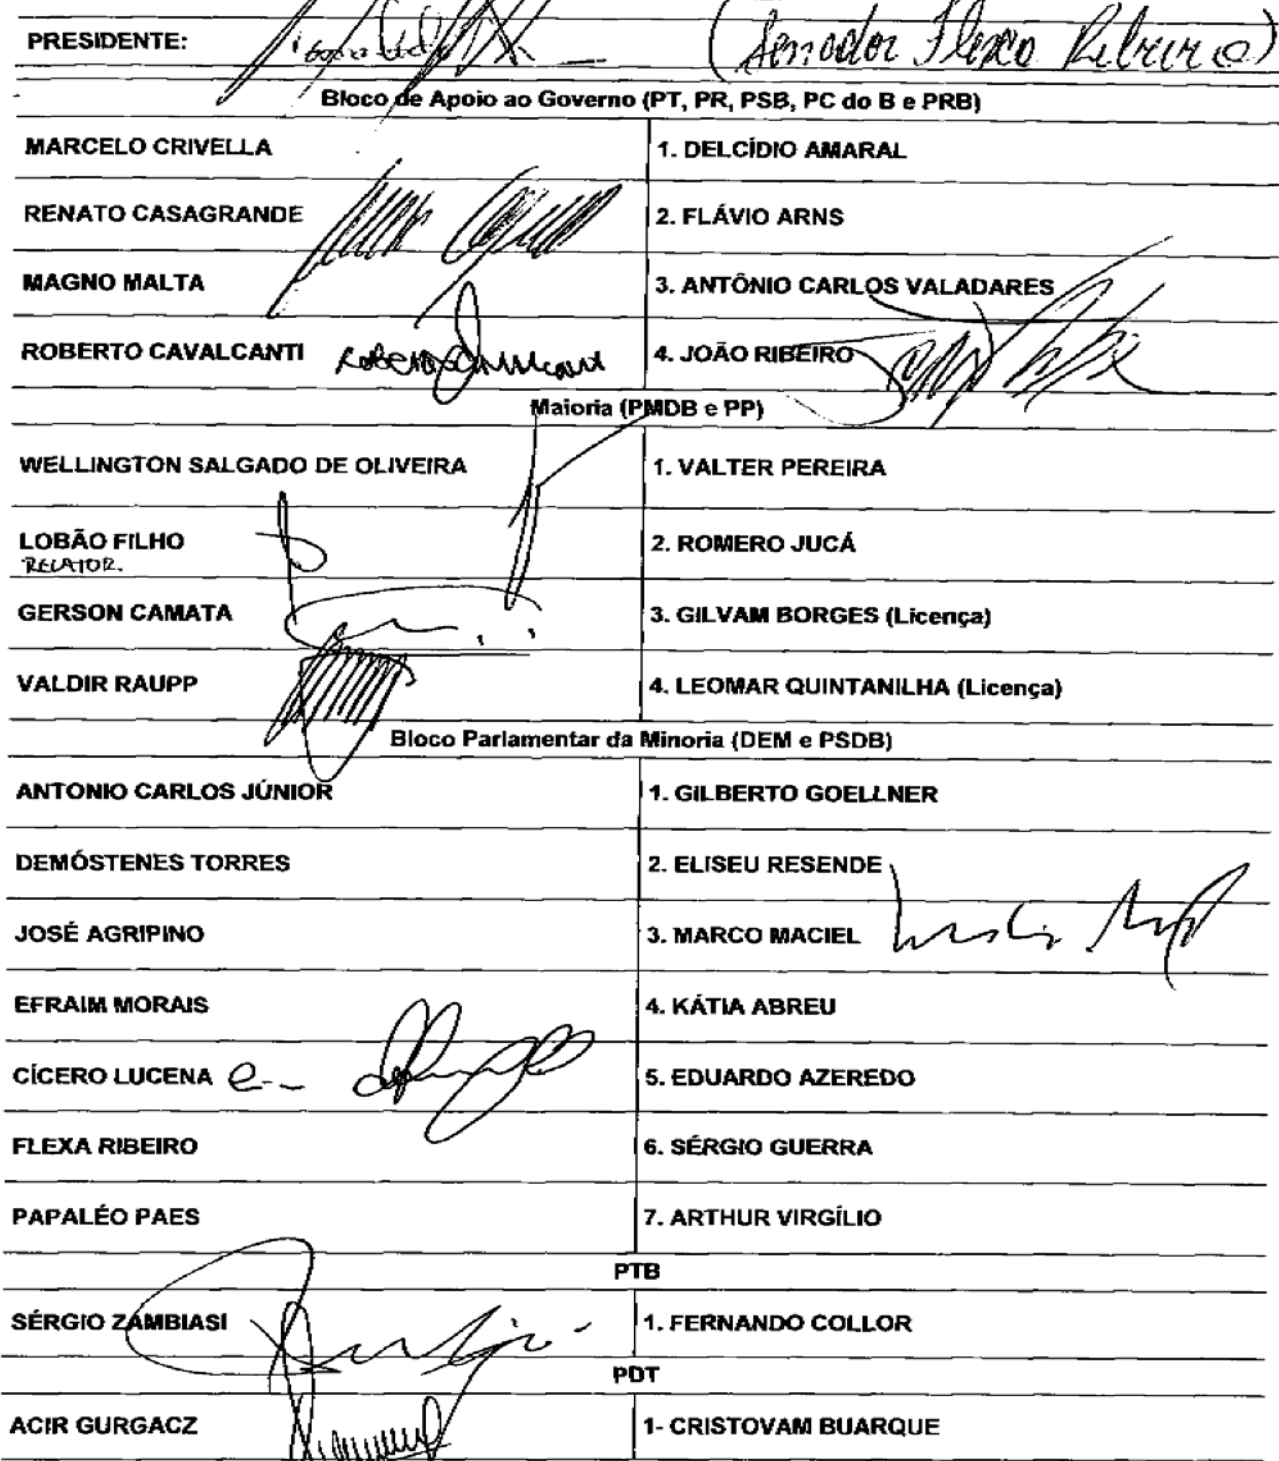 PRESIDENTE: (Senador Flexa Ribeiro)
Bloco de Apoio ao Governo (PT, PR, PSB, PC do B e PRB)
MARCELO CRIVELLA 1. DELCÍDIO AMARAL
RENATO CASAGRANDE 2. FLÁVIO ARNS
MAGNO MALTA 3. ANTÔNIO CARLOS VALADARES
ROBERTO CAVALCANTI 4. JOÃO RIBEIRO
Maioria (PMDB e PP)
WELLINGTON SALGADO DE OLIVEIRA 1. VALTER PEREIRA
LOBÃO FILHO 2. ROMERO JUCÁ
RELATOR.
GERSON CAMATA 3. GILVAM BORGES (Licença)
VALDIR RAUPP 4. LEOMAR QUINTANILHA (Licença)
Bloco Parlamentar da Minoria (DEM e PSDB)
ANTONIO CARLOS JÚNIOR 1. GILBERTO GOELLNER
DEMÓSTENES TORRES 2. ELISEU RESENDE
JOSÉ AGRIPINO 3. MARCO MACIEL
EFRAIM MORAIS 4. KÁTIA ABREU
CÍCERO LUCENA 5. EDUARDO AZEREDO
FLEXA RIBEIRO 6. SÉRGIO GUERRA
PAPALÉO PAES 7. ARTHUR VIRGÍLIO
PTB
SÉRGIO ZAMBIASI 1. FERNANDO COLLOR
PDT
ACIR GURGACZ 1- CRISTOVAM BUARQUE